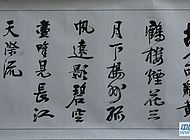 人西辭
鶴樓煙花三
月下揚州孤
帆遠影碧空
盡唯見長江
天際流